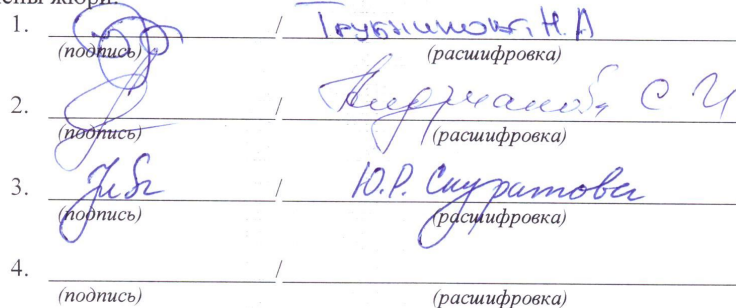 члены жюри:
1. / Трубникова Н.А
(подпись) (расшифровка)
2. / С И
(подпись) (расшифровка)
3. / Ю.Р. Скуратова
(подпись) (расшифровка)
4. /
(подпись) (расшифровка)